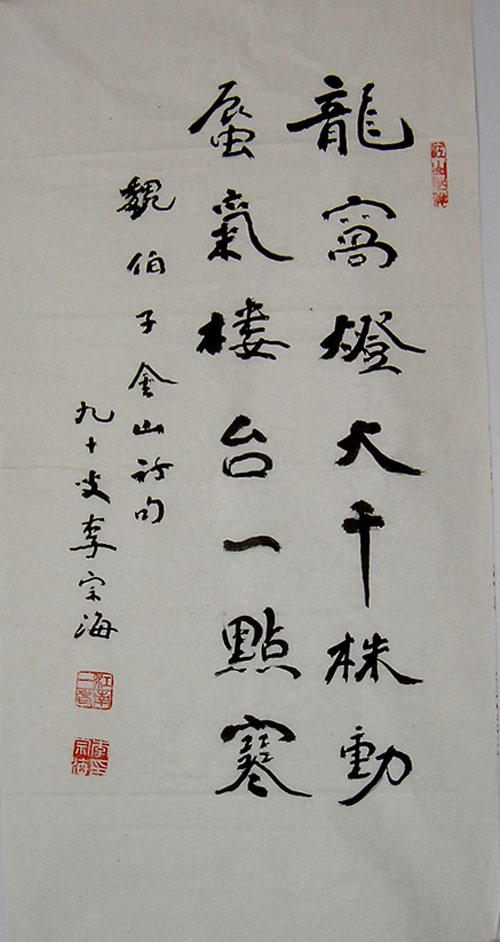 龍窩燈大千株動
蜃氣樓台一點寒
魏伯子金山詩句
九十叟李宗海